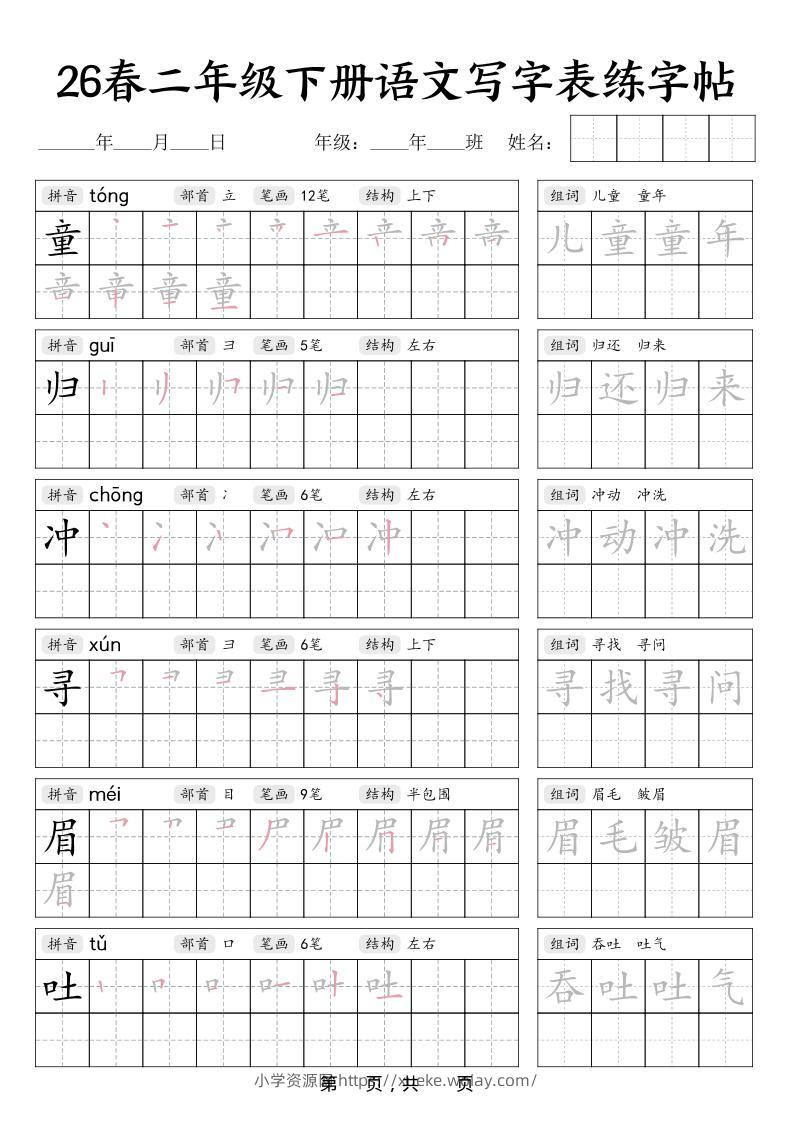 26春二年级下册语文写字表练字帖
______年____月____日 年级：____年____班 姓名：
拼音 tóng 部首 立 笔画 12笔 结构 上下 组词 儿童 童年
童 儿童童年
拼音 guī 部首 彐 笔画 5笔 结构 左右 组词 归还 归来
归 归还归来
拼音 chōng 部首 冫 笔画 6笔 结构 左右 组词 冲动 冲洗
冲 冲动冲洗
拼音 xún 部首 彐 笔画 6笔 结构 上下 组词 寻找 寻问
寻 寻找寻问
拼音 méi 部首 目 笔画 9笔 结构 半包围 组词 眉毛 皱眉
眉 眉毛皱眉
眉
拼音 tǔ 部首 口 笔画 6笔 结构 左右 组词 吞吐 吐气
吐 吞吐吐气
小学资源网 https://
第 页，共 页